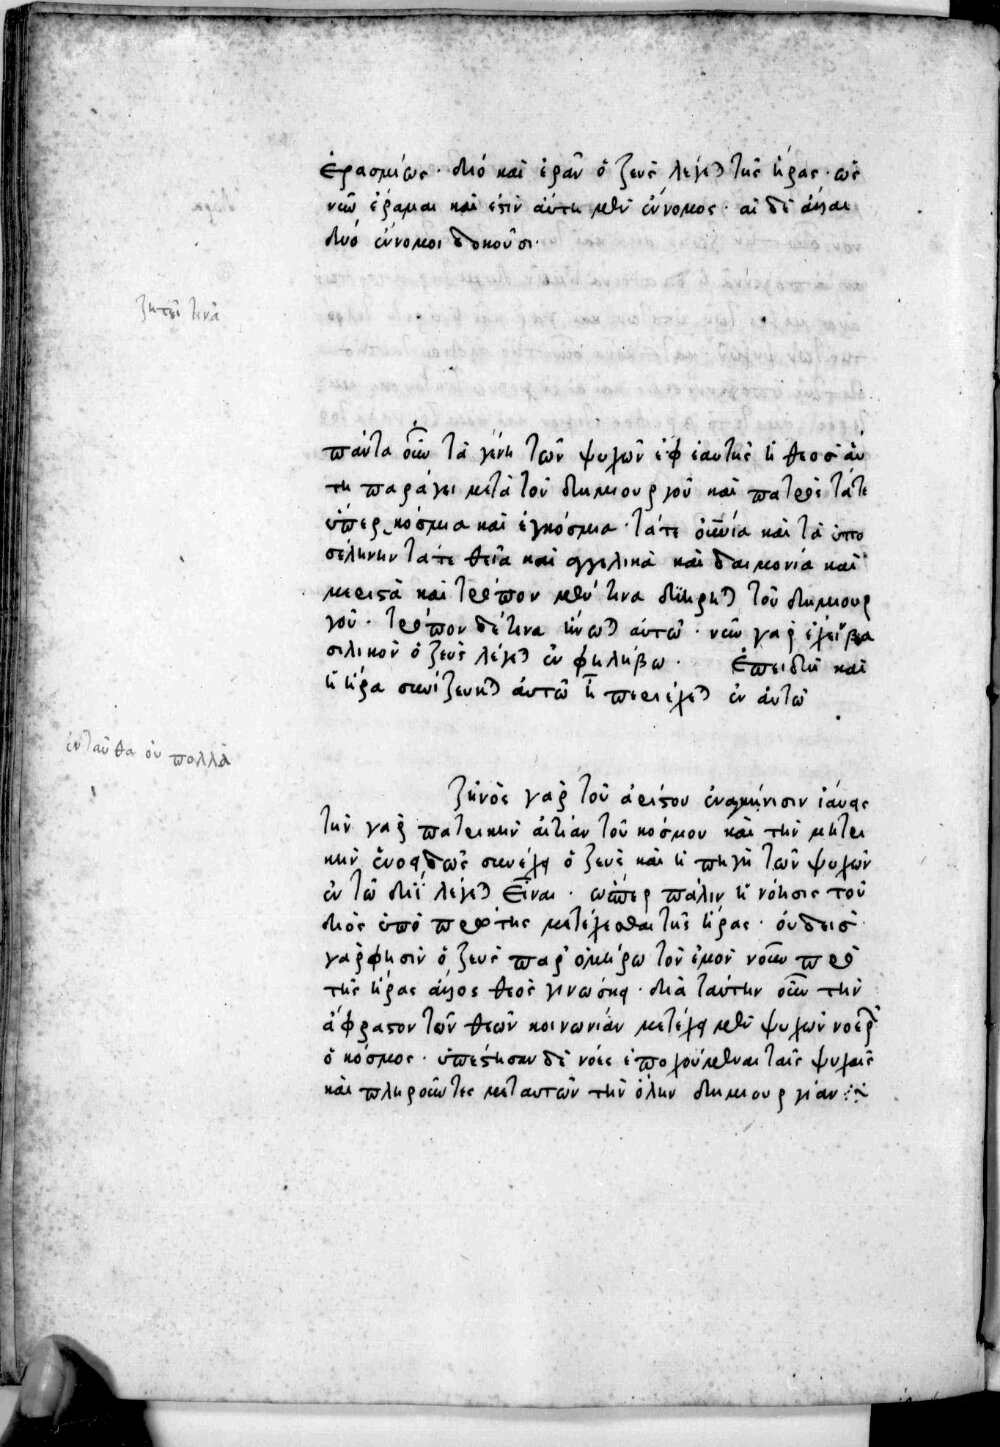 ἐρασμίως· διὸ καὶ ἐρᾶν ὁ ζεὺς λέγεται τῆς ἥρας· ὡς
νῦν ἔραμαι καὶ ἔστιν αὕτη μὲν εὔνομος· αἱ δὲ ἄλλαι
δύο εὔνομοι δοκοῦσι·
ζητεῖ τινὰ
πάντα οὖν τὰ γένη τῶν ψυχῶν ἐφ ἑαυτῆς ἡ θεὸς αὐ
τη παράγει μετὰ τοῦ δημιουργοῦ καὶ πατρὸς τά τε
ὑπερκόσμια καὶ ἐγκόσμια· τά τε οὐράνια καὶ τὰ ὑπο
σελήνην τά τε θεῖα καὶ ἀγγελικὰ καὶ δαιμονία καὶ
μεριστὰ καὶ τρόπον μέν τινα διῄρηται τοῦ δημιουρ
γοῦ· τρόπον δέ τινα ἥνωται αὐτῷ· νοῦν γὰρ ἔχειν βα
σιλικὸν ὁ ζεὺς λέγεται ἐν φιλήβω· Ἐπειδὴ καὶ
ἡ ἥρα συνέζευκται αὐτῶ καὶ περιέχεται ἐν αὐτῶ
ἐνταῦθα οὐ πολλὰ
ζηνὸς γὰρ τοῦ ἀρίστου ἐν ἀγκοίνῃσιν ἰαύεις
τὴν γὰρ πατρικὴν αἰτίαν τοῦ κόσμου καὶ τὴν μητρι
κὴν ἑνοειδῶς συνέχει ὁ ζεὺς καὶ ἡ πηγὴ τῶν ψυχῶν
ἐν τῶ διῒ λέγεται εἶναι· ὥσπερ πάλιν ἡ νόησις τοῦ
διὸς ὑπὸ πρώτης μετέχεσθαι τῆς ἥρας· οὐδεὶς
γάρ φησιν ὁ ζεὺς παρ ὁμήρω τὸν ἐμὸν νοῦν πρὸ
τῆς ἥρας ἄλλος θεὸς γινώσκει· διὰ ταύτην οὖν τὴν
ἄφραστον τῶν θεῶν κοινωνίαν μετέχει μὲν ψυχῶν νοερῶν
ὁ κόσμος· ὑπέστησαν δὲ νόες ἐποχούμενοι ταῖς ψυχαῖς
καὶ πληροῦντες μετ αυτῶν τὴν ὅλην δημιουργίαν